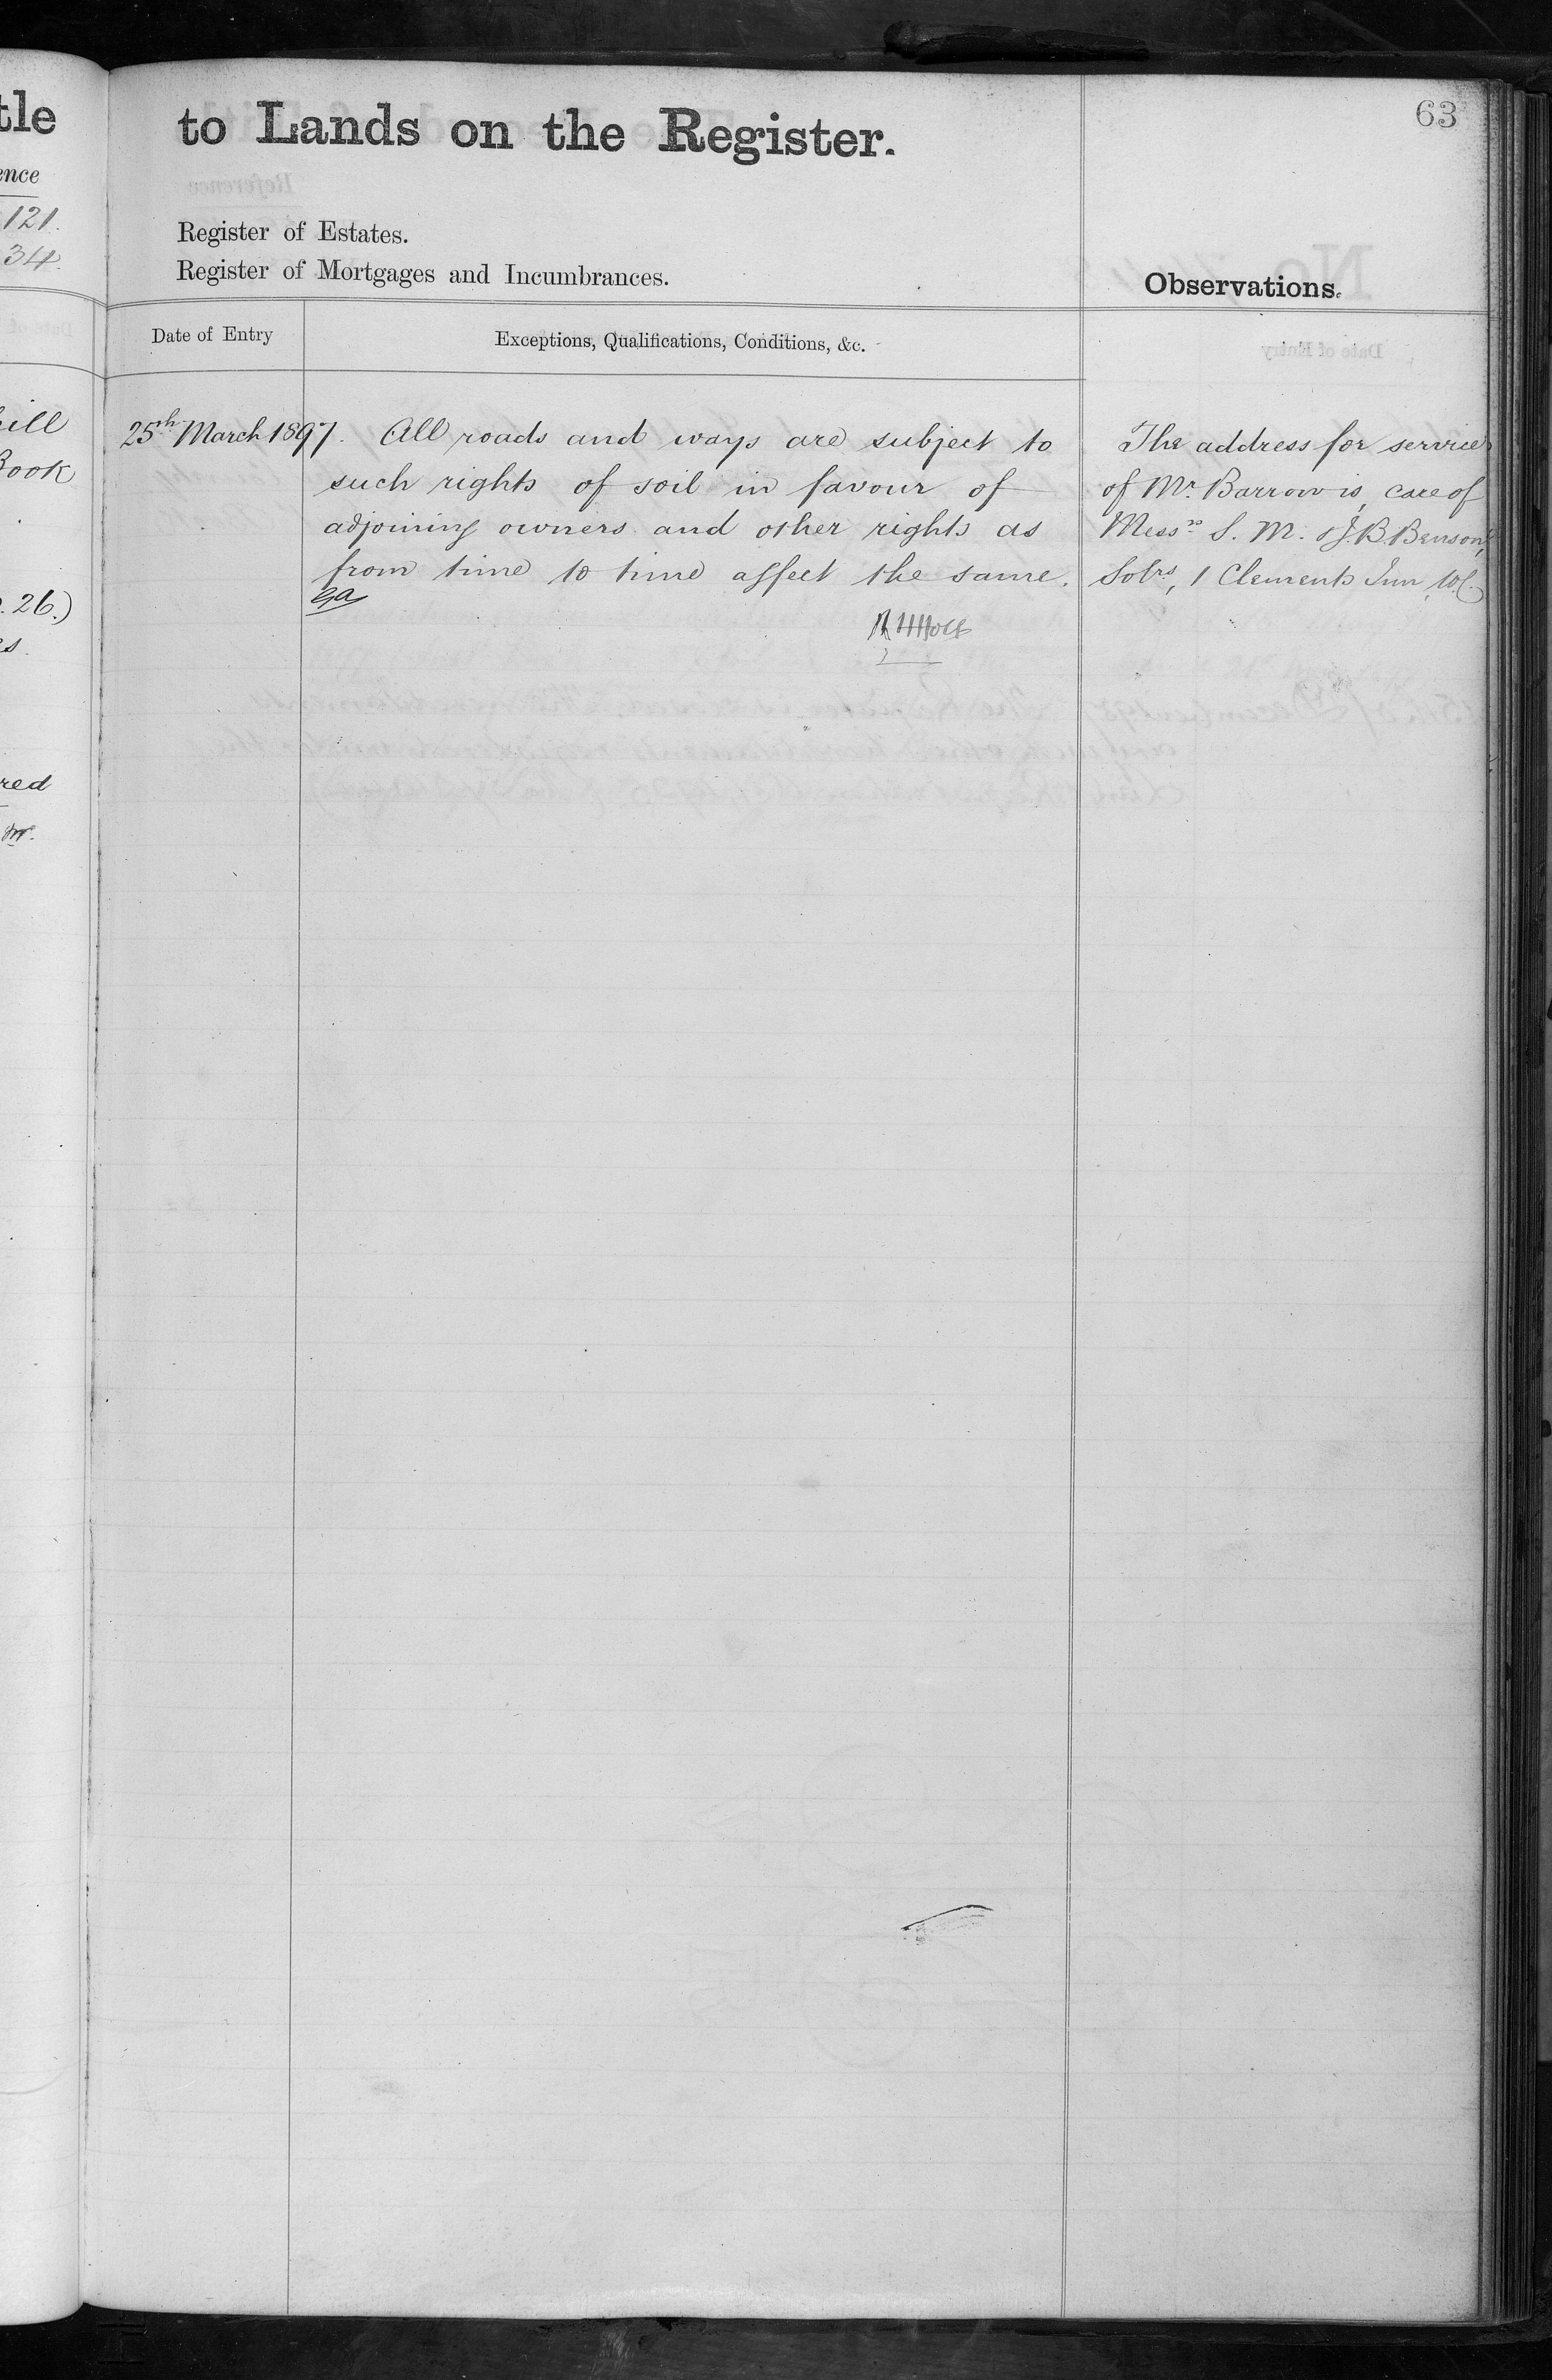 tle
ence
121.
34.
ill
Book
.26.)
s.
red
to Lands on the Register.
63
Register of Estates.
Register of Mortgages and Incumbrances.
Observations.
Date of Entry
Exceptions, Qualifications, Conditions, &c.
25th March 1897. All roads and ways are subject to
such rights of soil in favour of
adjoining owners and other rights as
from time to time affect the same.
The address for service
of Mr. Barrow is, care of
Messrs S. M. & J. B. Benson,
Solrs, 1 Clements Inn, W.C.